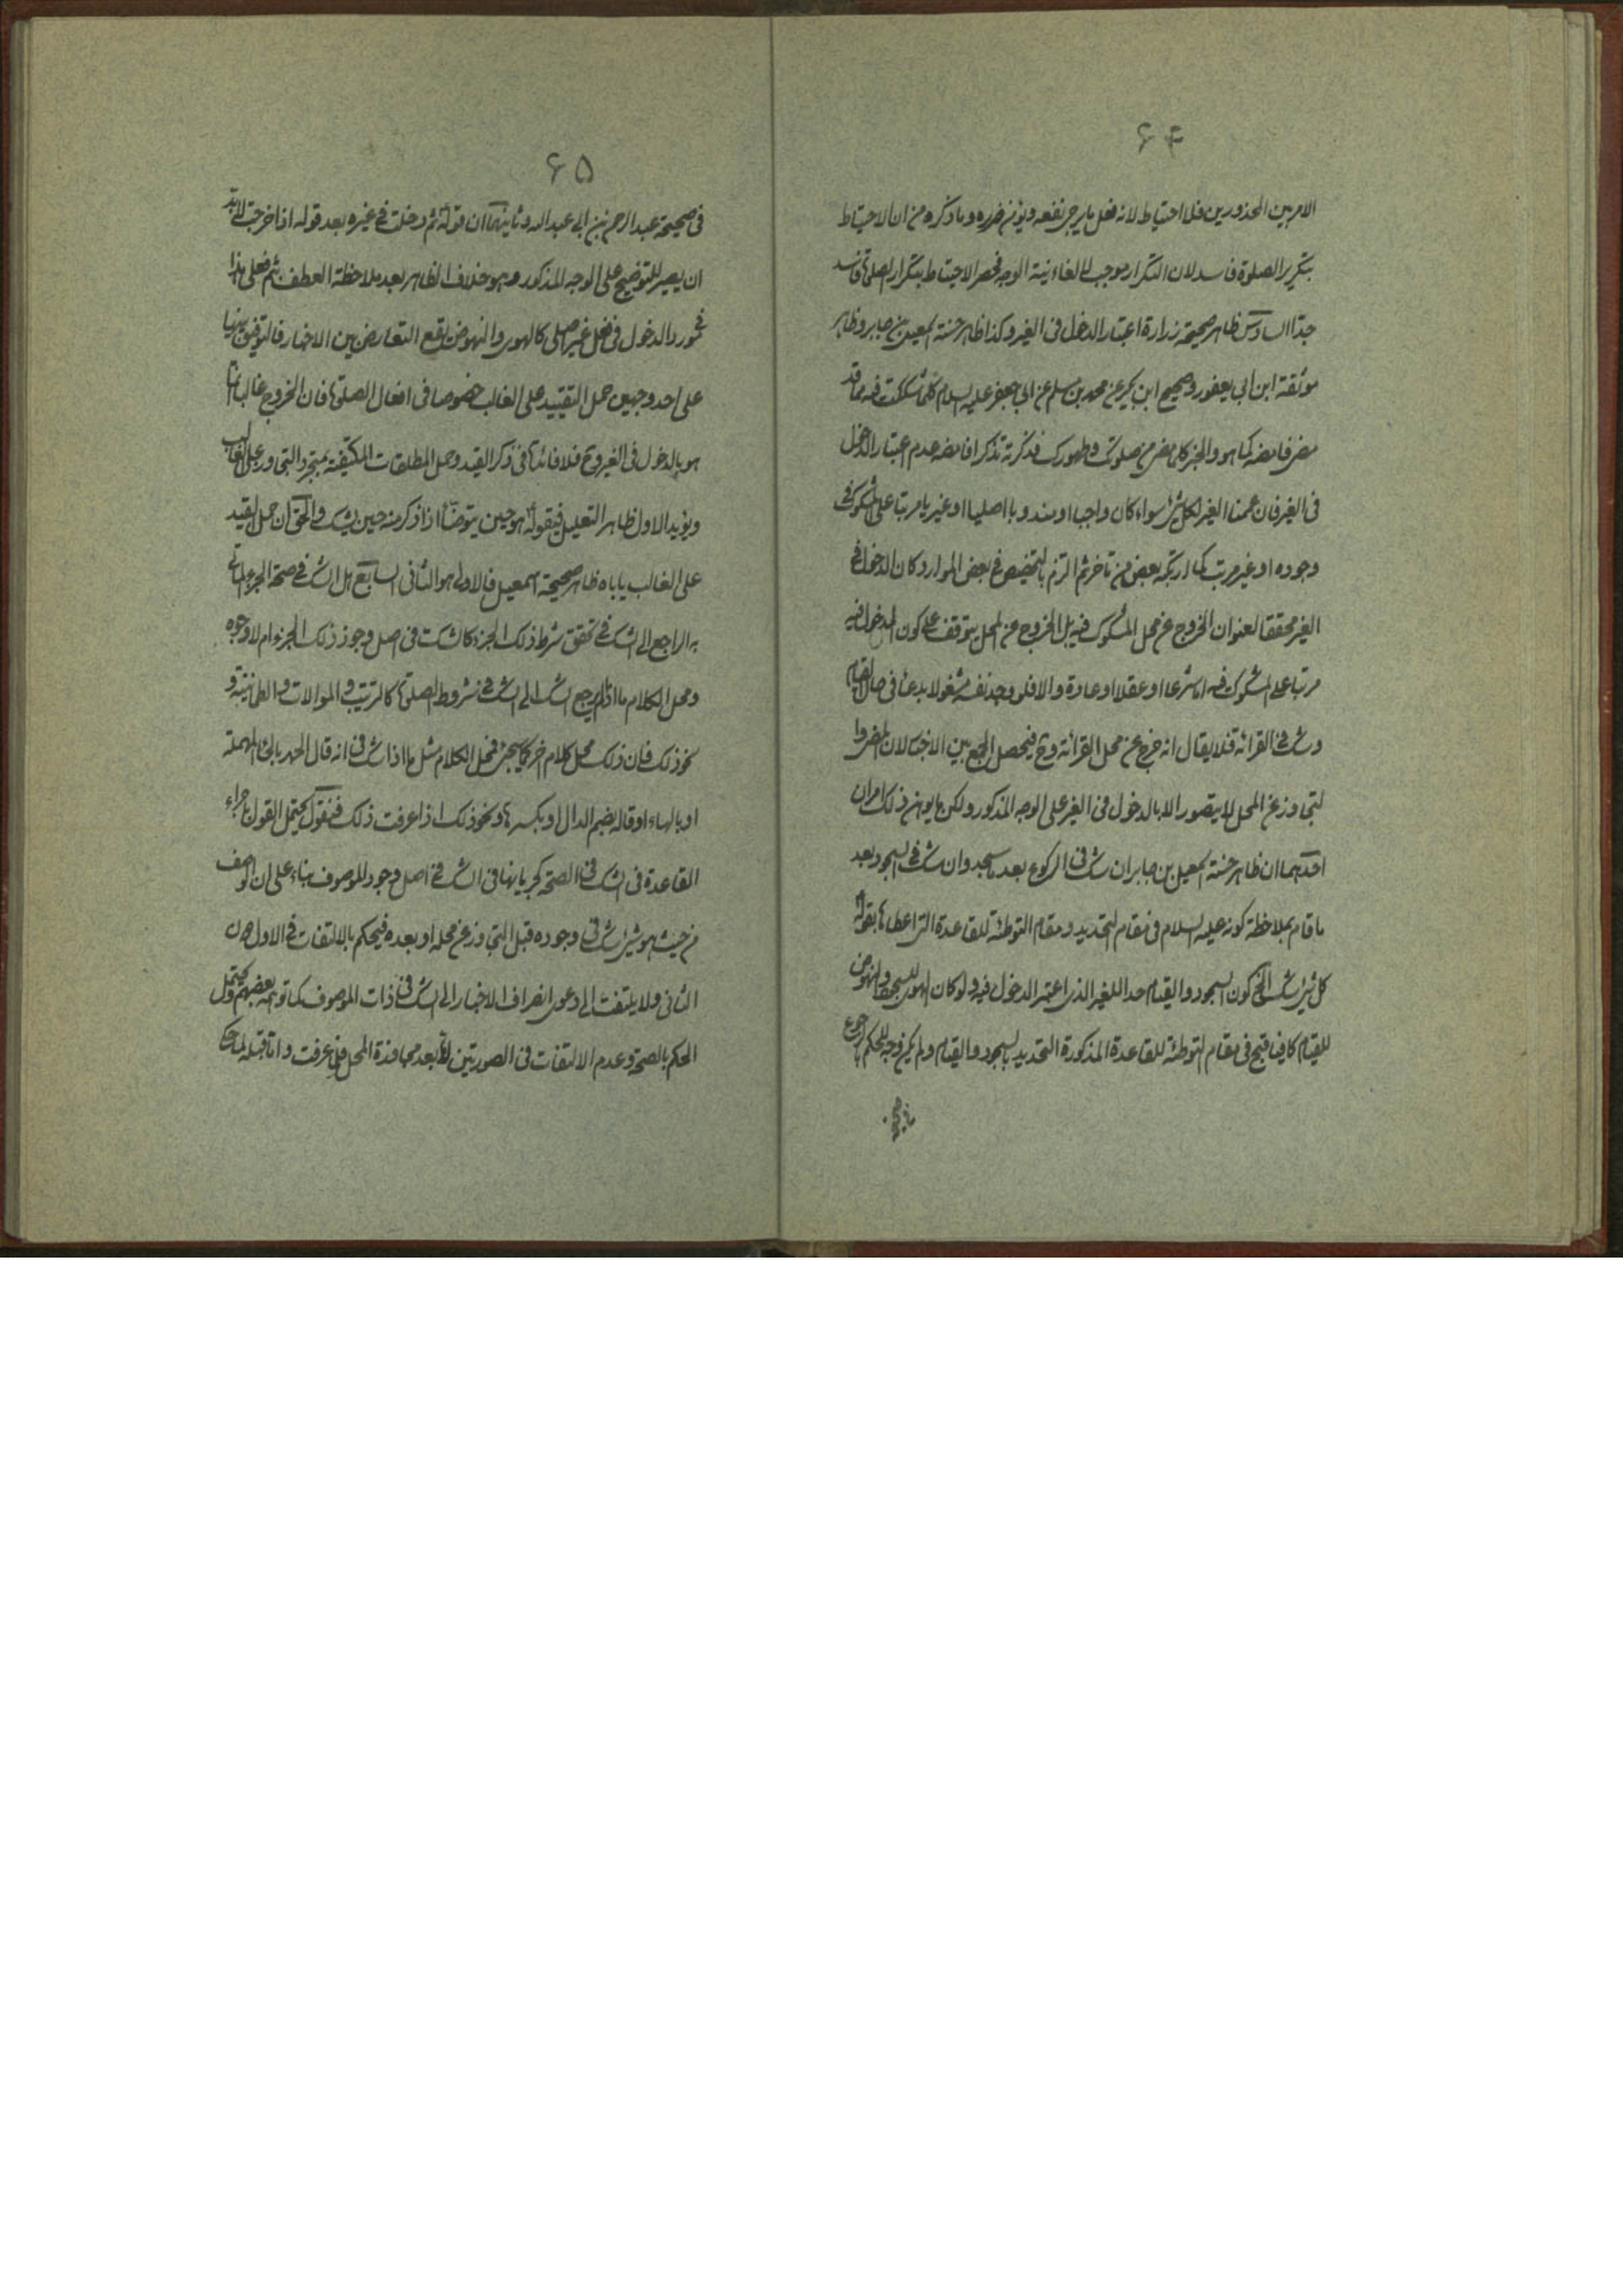 ۶۴
الامرين المحذورين فلا احتياط لانه فعل ما يرجى نفعه ويؤمن ضرره وما ذكره من ان الاحتياط
بتكرير الصلوة فاسد لان التكرار موجب لالغاء نية الوجه فحصر الاحتياط بتكرار الصلوة فاسد
جدّا السادس ظاهر صحيحة زرارة اعتبار الدخول فى الغير وكذا ظاهر حسنة اسمعيل بن جابر وظاهر
موثقة ابن ابى يعفور وصحيح ابن بكير عن محمد بن مسلم عن ابى جعفر عليه السلام كلما شككت فيه مما قد
مضى فامضه كما هو والخبر كلما مضى من صلوتك وطهورك فذكرته تذكرا فامضه عدم اعتبار الدخول
فى الغير فان عممنا الغير لكل شئ سواء كان واجبا او مندوبا اصليا او غيره مرتبا على المشكوك فى
وجوده او غير مرتب كما ارتكبه بعض من تاخر ثم التزم بالتخصيص فى بعض الموارد كان الدخول فى
الغير محققا لعنوان الخروج عن محل المشكوك فيه بل الخروج عن المحل يتوقف على كون المدخول فيه
مرتبا على المشكوك فيه اما شرعا او عقلا او عادة والا فلو وجد نفسه مشغولا بدعاء فى حال القيام
وشك فى القرائة فلا يقال انه خرج عن محل القرائة وح فيحصل الجمع بين الاخبار لان المضى و
التجاوز عن المحل لا يتصور الا بالدخول فى الغير على الوجه المذكور ولكن يوهن ذلك امران
احدهما ان ظاهر حسنة اسمعيل بن جابر ان شك فى الركوع بعد ما سجد وان شك فى السجود بعد
ما قام بملاحظة كونه عليه السلام فى مقام التحديد ومقام التوطئة للقاعدة التى اعطاها بقوله
كل شئ شك الخ كون السجود والقيام حدا للغير الذى اعتبر الدخول فيه ولو كان الهوى للسجود والنهوض
للقيام كافيا قبح فى مقام التوطئة للقاعدة المذكورة التحديد بالسجود والقيام ولم يكن وجه للحكم بالرجوع
۶۵
فى صحيحة عبد الرحمن بن ابى عبد الله وثانيهما ان قوله ثم دخلت فى غيره بعد قوله اذا خرجت لا بد
ان يصير للتوضيح على الوجه المذكور وهو خلاف الظاهر بعد ملاحظة العطف بثم فعلى هذا
فى مورد الدخول فى فعل غير اصلى كالهوى والنهوض يقع التعارض بين الاخبار فالتوفيق بينها
على احد وجهين حمل التقييد على الغالب خصوصا فى افعال الصلوة فان الخروج غالبا انما
هو بالدخول فى الغير وح فلا فائدة فى ذكر القيد وحمل المطلقات المكتفية بمجرد التجاوز على الغالب
ويؤيد الاول ظاهر التعليل فى قوله هو حين يتوضأ اذكر منه حين يشك والحق ان حمل القيد
على الغالب ياباه ظاهر صحيحة اسمعيل فالاولى هو الثانى السابع هل الشك فى صحة الجزء الماتى
به الراجع الى الشك فى تحقق شرط ذلك الجزء كالشك فى اصل وجود ذلك الجزء ام لا وجوه
ومحل الكلام ما اذا لم يرجع الشك الى الشك فى شروط الصلوة كالترتيب والموالات والطمانينة و
نحو ذلك فان ذلك محل كلام اخر كما يجئ فمحل الكلام مثل ما اذا شك فى انه قال الحمد بالحاء المهملة
او بالهاء او قاله بضم الدال او بكسرها ونحو ذلك اذا عرفت ذلك فنقول يحتمل القول باجراء
القاعدة فى الشك فى الصحة كجريانها فى الشك فى اصل وجود الموصوف بناء على ان الوصف
من حيث هو شئ شك فى وجوده قبل التجاوز عن محله او بعده فيحكم بالالتفات فى الاول دون
الثانى ولا يلتفت الى دعوى انصراف الاخبار الى الشك فى ذات الموصوف كما توهمه بعضهم ويحتمل
الحكم بالصحة وعدم الالتفات فى الصورتين اما بعد مجاوزة المحل فلما عرفت واما قبله